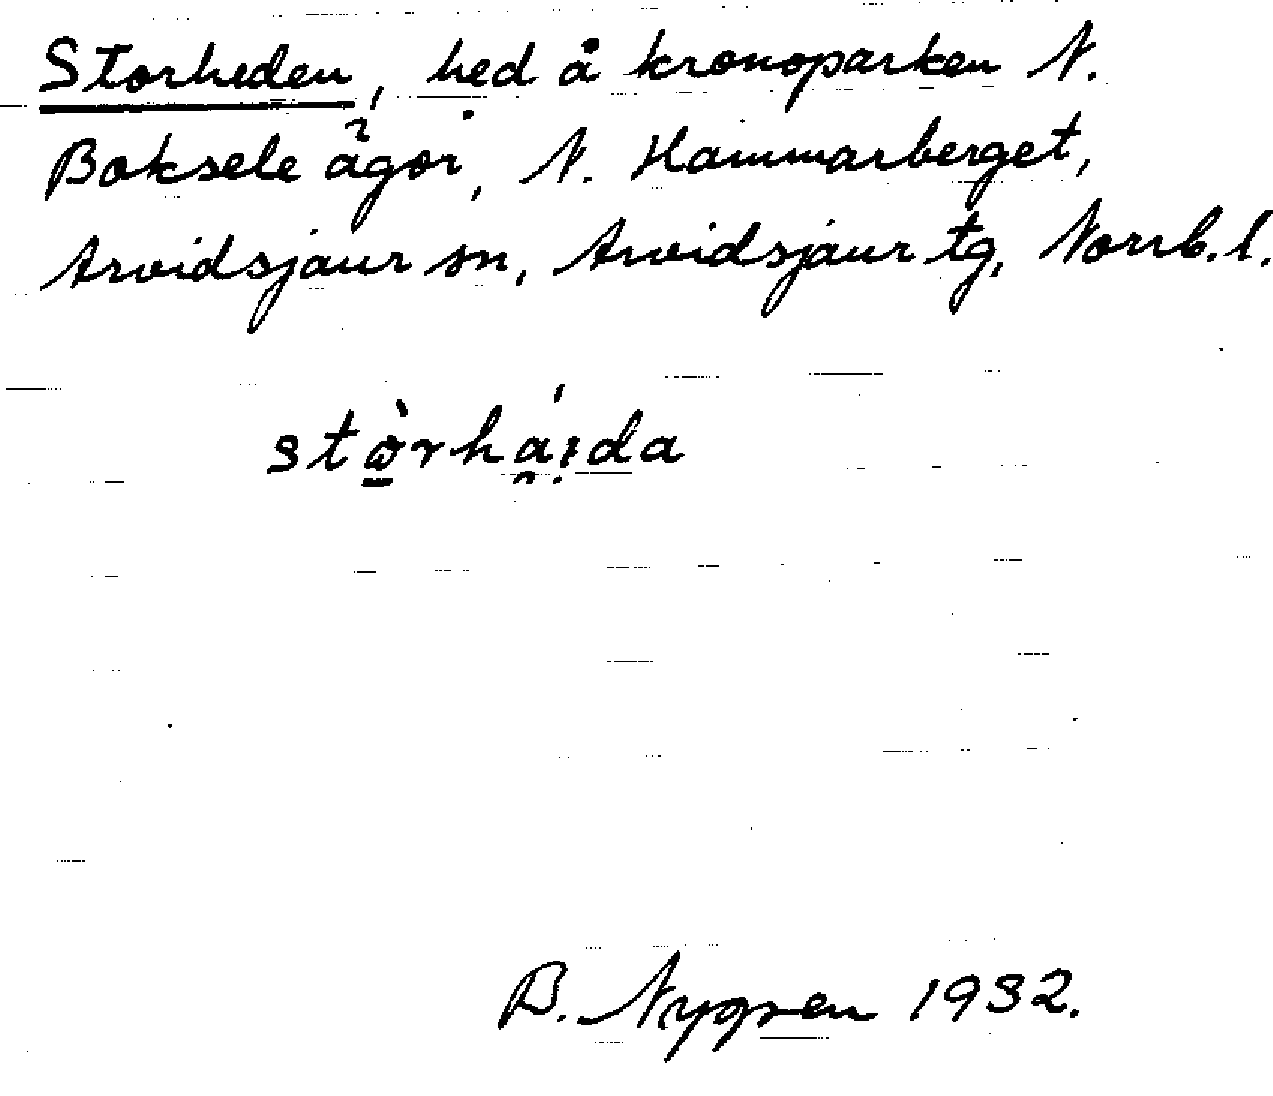 Storheden, hed å kronoparken N.
Boksele ägor, N. Hammarberget,
Arvidsjaur sn, Arvidsjaur tg, Norrb. l.
B. Nygren 1932.